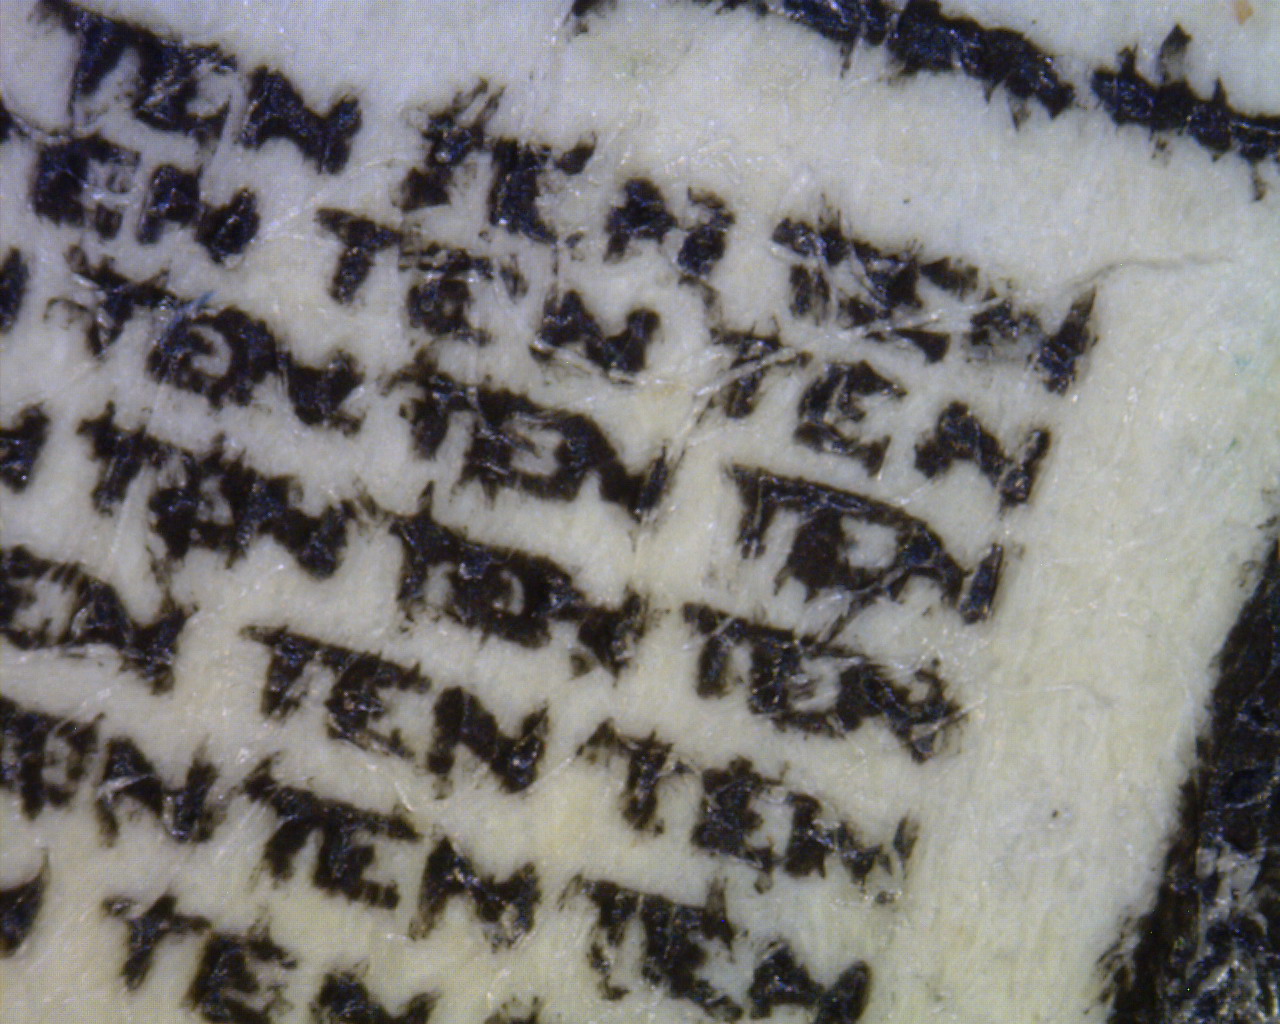 TEN TEN TEN
TEN TEN TEN
N TEN TEN TEN
N TEN TEN TEN
EN TEN TEN
EN TEN TEN
N TEN